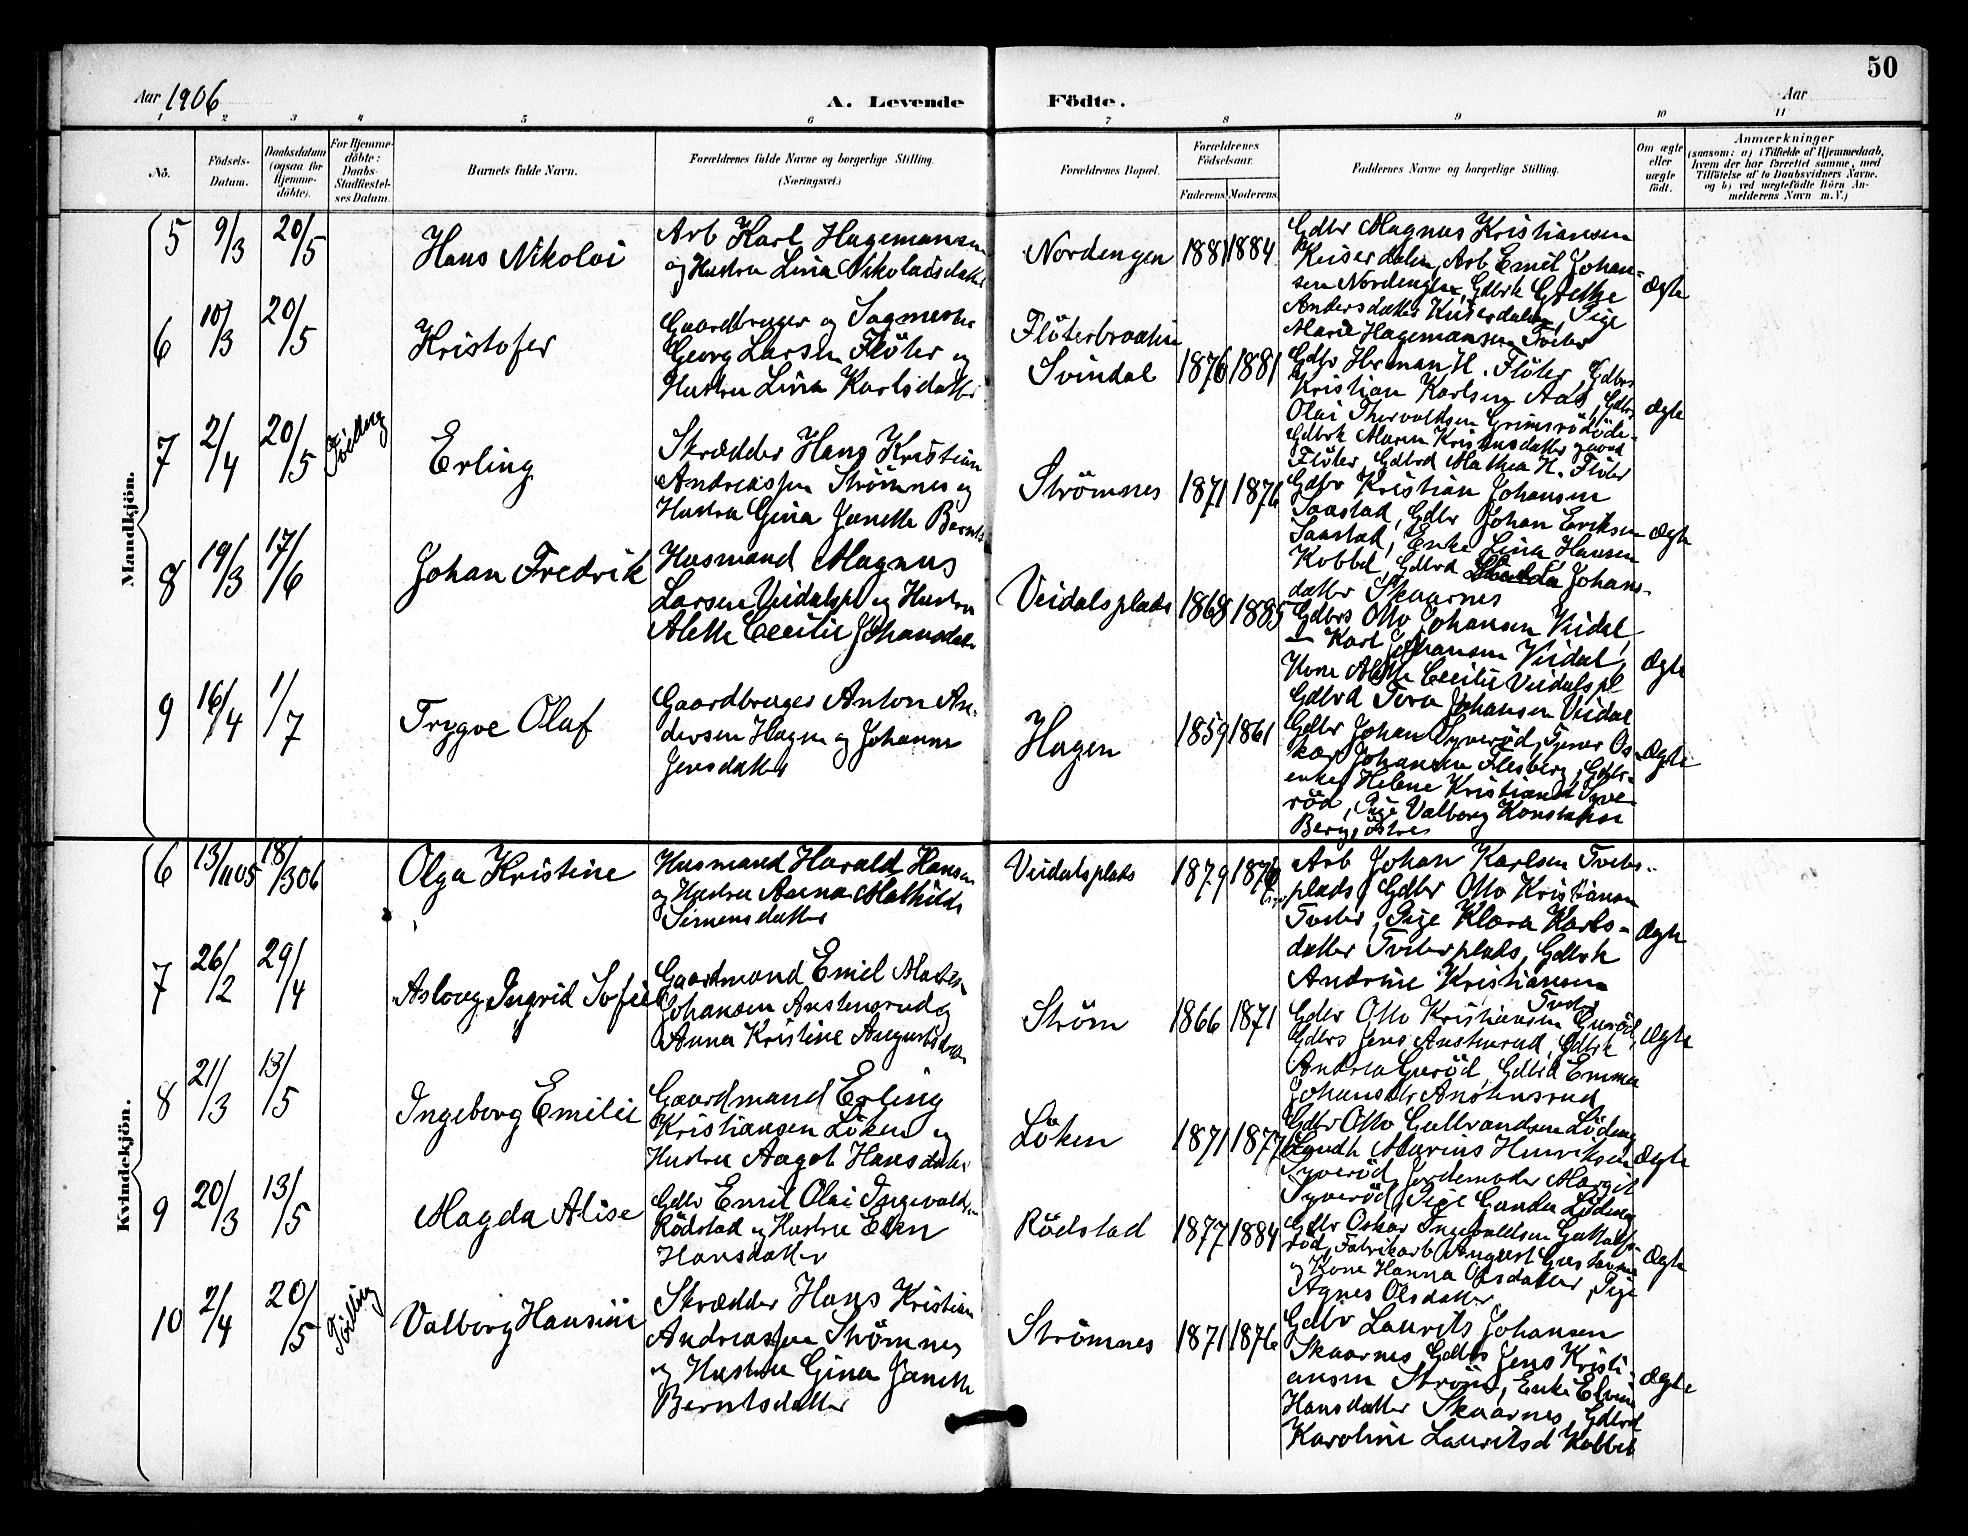 50
Aar 1906
A. Levende Födte.
Aar
1 2 3 4 5 6 7 8 9 10 11
No.
Födsels-Datum.
Daabsdatum (ogsaa for Hjemme-döbte).
For Hjemme-döbte: Daabs-Stadfæstel-ses Datum.
Barnets fulde Navn.
Forældrenes fulde Navne og borgerlige Stilling. (Næringsvei.)
Forældrenes Bopæl.
Forældrenes Födselsaar.
Faderens Moderens
Faddernes Navne og borgerlige Stilling.
Om ægte eller uægte födt.
Anmærkninger
(saasom: a) i Tilfælde af Hjemmedaab,
hvem der har forrettet samme, med
Tilföielse af to Daabsvidners Navne.
og b) ved uægtefödte Börn An-
melderens Navn m.V.)
Mandkjön.
5 9/3 20/5 Hans Nikolai
Arb Karl Hagemansen
og Hustru Lina Nikolaisdatter
Nordengen 1881 1884
Gdbr Magnus Kristiansen
Keiserdalen, Arb Emil Johan-
sen Nordengen, Gdbrk Grethe
Andersdatter Keiserdalen, Pige
Marie Hagemansen Tveter
Ægte
6 10/3 20/5 Kristofer
Gaardbruger og Sagmester
Georg Larsen Flöter og
Hustru Lina Karlsdatter
Flöterbraaten
Svindal 1876 1881
Gdbr Herman H. Flöter, Gdbrs
Kristian Karlsen Aas, Gdbr
Olai Thorvaldsen Grimsrödöde-
Gdbrk Maren Kristensdatter
Flöter, Gdbrd Mathea H. Flöter
Ægte
7 2/4 20/5 Tvilling Erling
Skrædder Hans Kristian
Andreassen Strömnes og
Hustru Gina Janette Bernts
Strömnes 1871 1876
Gdbr Kristian Johansen
Saastad, Gdbr Johan Eriksen
Saastad, Enke Lina Hansen
Kobbel, Gdbrd Johans-
datter Skaarnes
Ægte
8 19/3 17/6 Johan Fredrik
Husmand Magnus
Larsen Veidalspl og Hustru
Alette Cecilie Johansdatter
Veidalsplads 1868 1885
Gdbrs Otto Johansen Veidal,
— Karl Johansen Veidal,
Kone Alette Cecilie Veidalspl
Gdbrd Tora Johansen Veidal
Ægte
9 16/4 1/7 Trygve Olaf
Gaardbruger Anton An-
dersen Hagen og Johanne
Jensdatter
Hagen 1859 1861
Gdbr Johan Syveröd, Tjener Os-
kar Johansen Flesberg, Gdbr-
enke Helene Kristiansd Syve-
röd, Pige Valborg Konstanse
Berg, östre
Ægte
Kvindekjön.
6 13/1105 18/306 Olga Kristine
Husmand Harald Hansen
og Hustru Anna Mathilde
Simensdatter
Veidalsplads 1879 1876
Arb Johan Karlsen Tveter-
plads, Gdbr Otto Kristiansen
Tveter, Pige Klara Karls-
datter Tveterplads, Gdbrk
Andrine Kristiansen
Tveter
Ægte
7 26/2 29/4 Aslaug Ingrid Sofie
Gaardmand Emil
Johansen Austensrud og
Anna Kristine Augustsdatter
Ström 1866 1871
Gdbr Otto Kristiansen Guröd,
Gdbrs Jens Austensrud, Gdbrk
Andrea Guröd, Gdbrd Emma
Johansdr Austensrud
Ægte
8 21/3 13/5 Ingeborg Emilie
Gaardmand Erling
Kristiansen Löken og
Hustru Aagot Hansdatter
Löken 1871 1877
Gdbr Otto Gulbrandsen Löding
Landh Marius Henriksen
Syveröd, Jordemoder Margit
Syveröd, Pige Gunda Löding
Ægte
9 20/3 13/5 Magda Alise
Gdbr Emil Olai Ingevaldsen
Rödstad og Hustru Elen
Hansdatter
Rödstad 1877 1884
Gdbr Oskar Ingevaldsen
röd, Fabrikarb August Gustavsen
og Kone Hanna Olsdatter, Pige
Agnes Olsdatter
Ægte
10 2/4 20/5 Tvilling Valborg Hansine
Skrædder Hans Kristian
Andreassen Strömnes
og Hustru Gina Janette
Berntsdatter
Strömnes 1871 1876
Gdbr Laurits Johansen
Skaarnes, Gdbrs Jens Kristi-
ansen Ström, Enke Elvine
Hansdatter Skaarnes, Gdbrd
Karoline Lauritsd Kobbel
Ægte